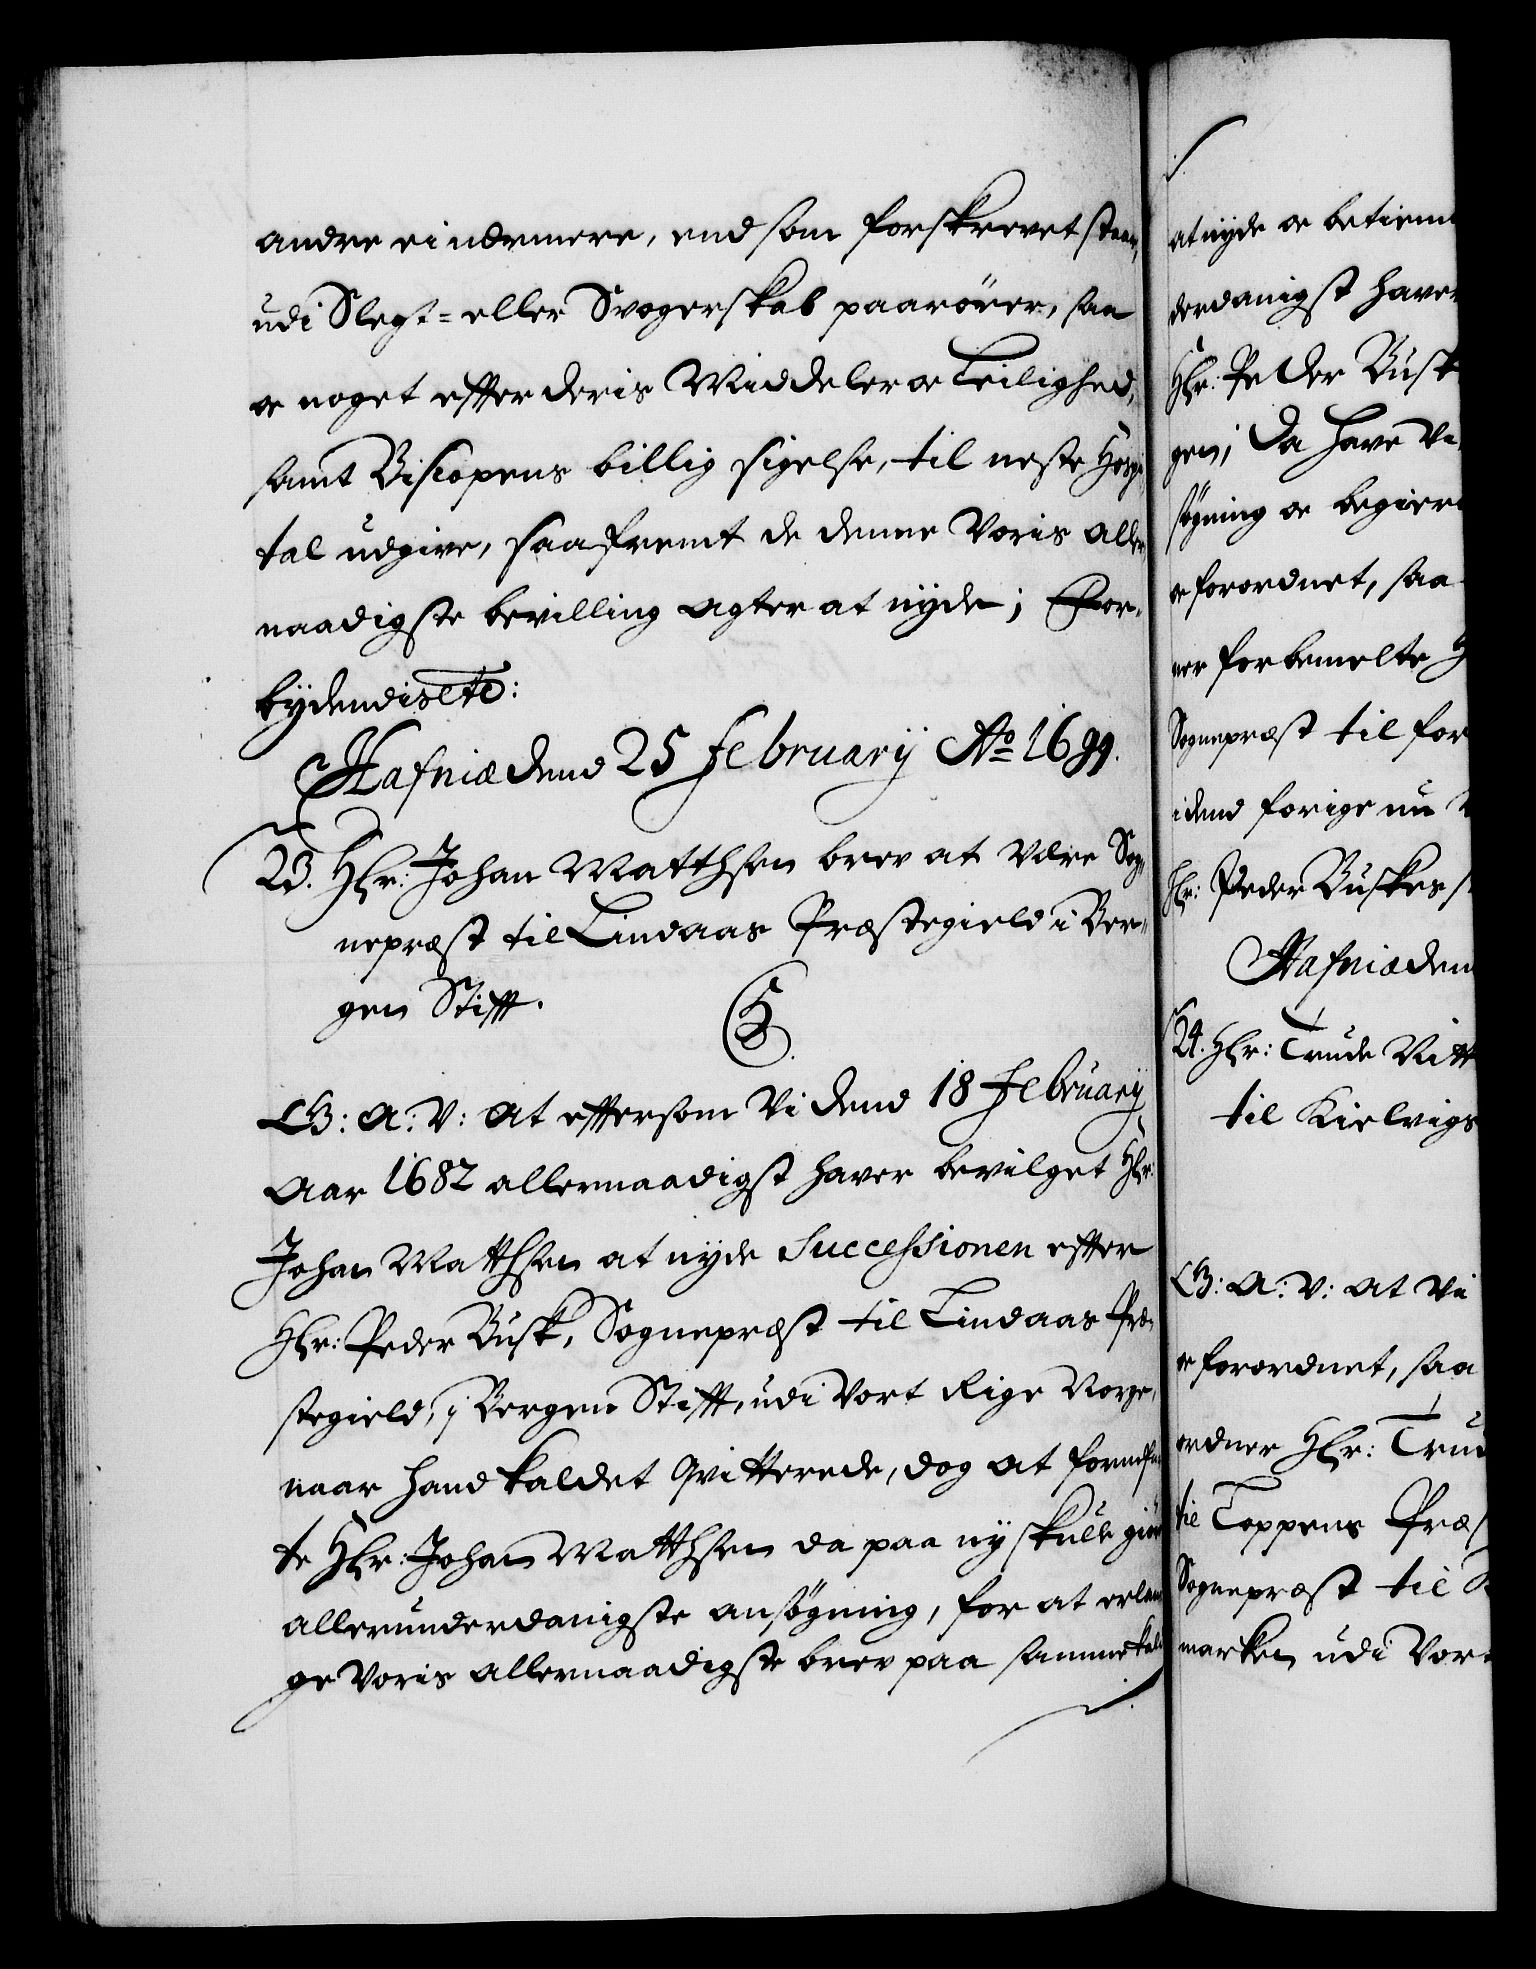 andre ei nermere, end som forskrevet staar,
udi Slegt= eller Svogerskab paarører, saa
oc noget effter deris Middeler oc Leilighed,
samt Biscopens billig sigelse, til neste Hospi¬
tal udgive, saafremt de denne Voris aller¬
naadigste bevilling agter at nyde; For¬
bydendis etc:
Hafniæ dend 25 February Ao 1699.
23. Hr: Johan Matthsen brev at være Sog¬
nepræst til Lindaas Præstegield i Ber¬
gen Stifft.
C5.
G: A: V: at eftersom Vi dend 18 February
Aar 1682 allernaadigst haver bevilget Hr:
Johan Matthsen at nyde Successionen effter
Hr: Peder Busk, Sognepræst til Lindaas Præ¬
stegield, i Bergens Stifft, udi Vort Rige Norge,
naar hand kaldet qvitterede, dog at formel¬
te Hr: Johan Matthsen da paa ny skulle giøre
allerunderdanigste ansøgning, for at erlan¬
ge Voris allernaadigste brev paa samme kald
at nyde oc betiene
derdanigst haver
Hr: Peder Busk
gen; Da have Vi
søgning oc begiere
oc forordnet, saa
ner forbemelte H
Sognepræst til for
idend forige nu
Hr: Peder Buskes
Hafniæ den
24. Hr: Trude Nitt
til Kielvigs
G: A: V: at Vi
oc forordnet, saa
ordner Hr: Trud
til Loppens Præs
Sognepræst til K
marken udi Vort